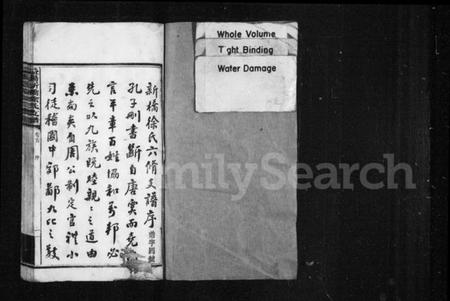 Whole Volume
Tight Binding
Water Damage
新橋徐氏六修支譜序
孔子刪書斷自唐虞而堯
官平章百姓協和萬邦必
先之以九族既睦親親之道由
來尚矣我周公制定官禮小
司徒稽國中郊鄙九比之數
FamilySearch